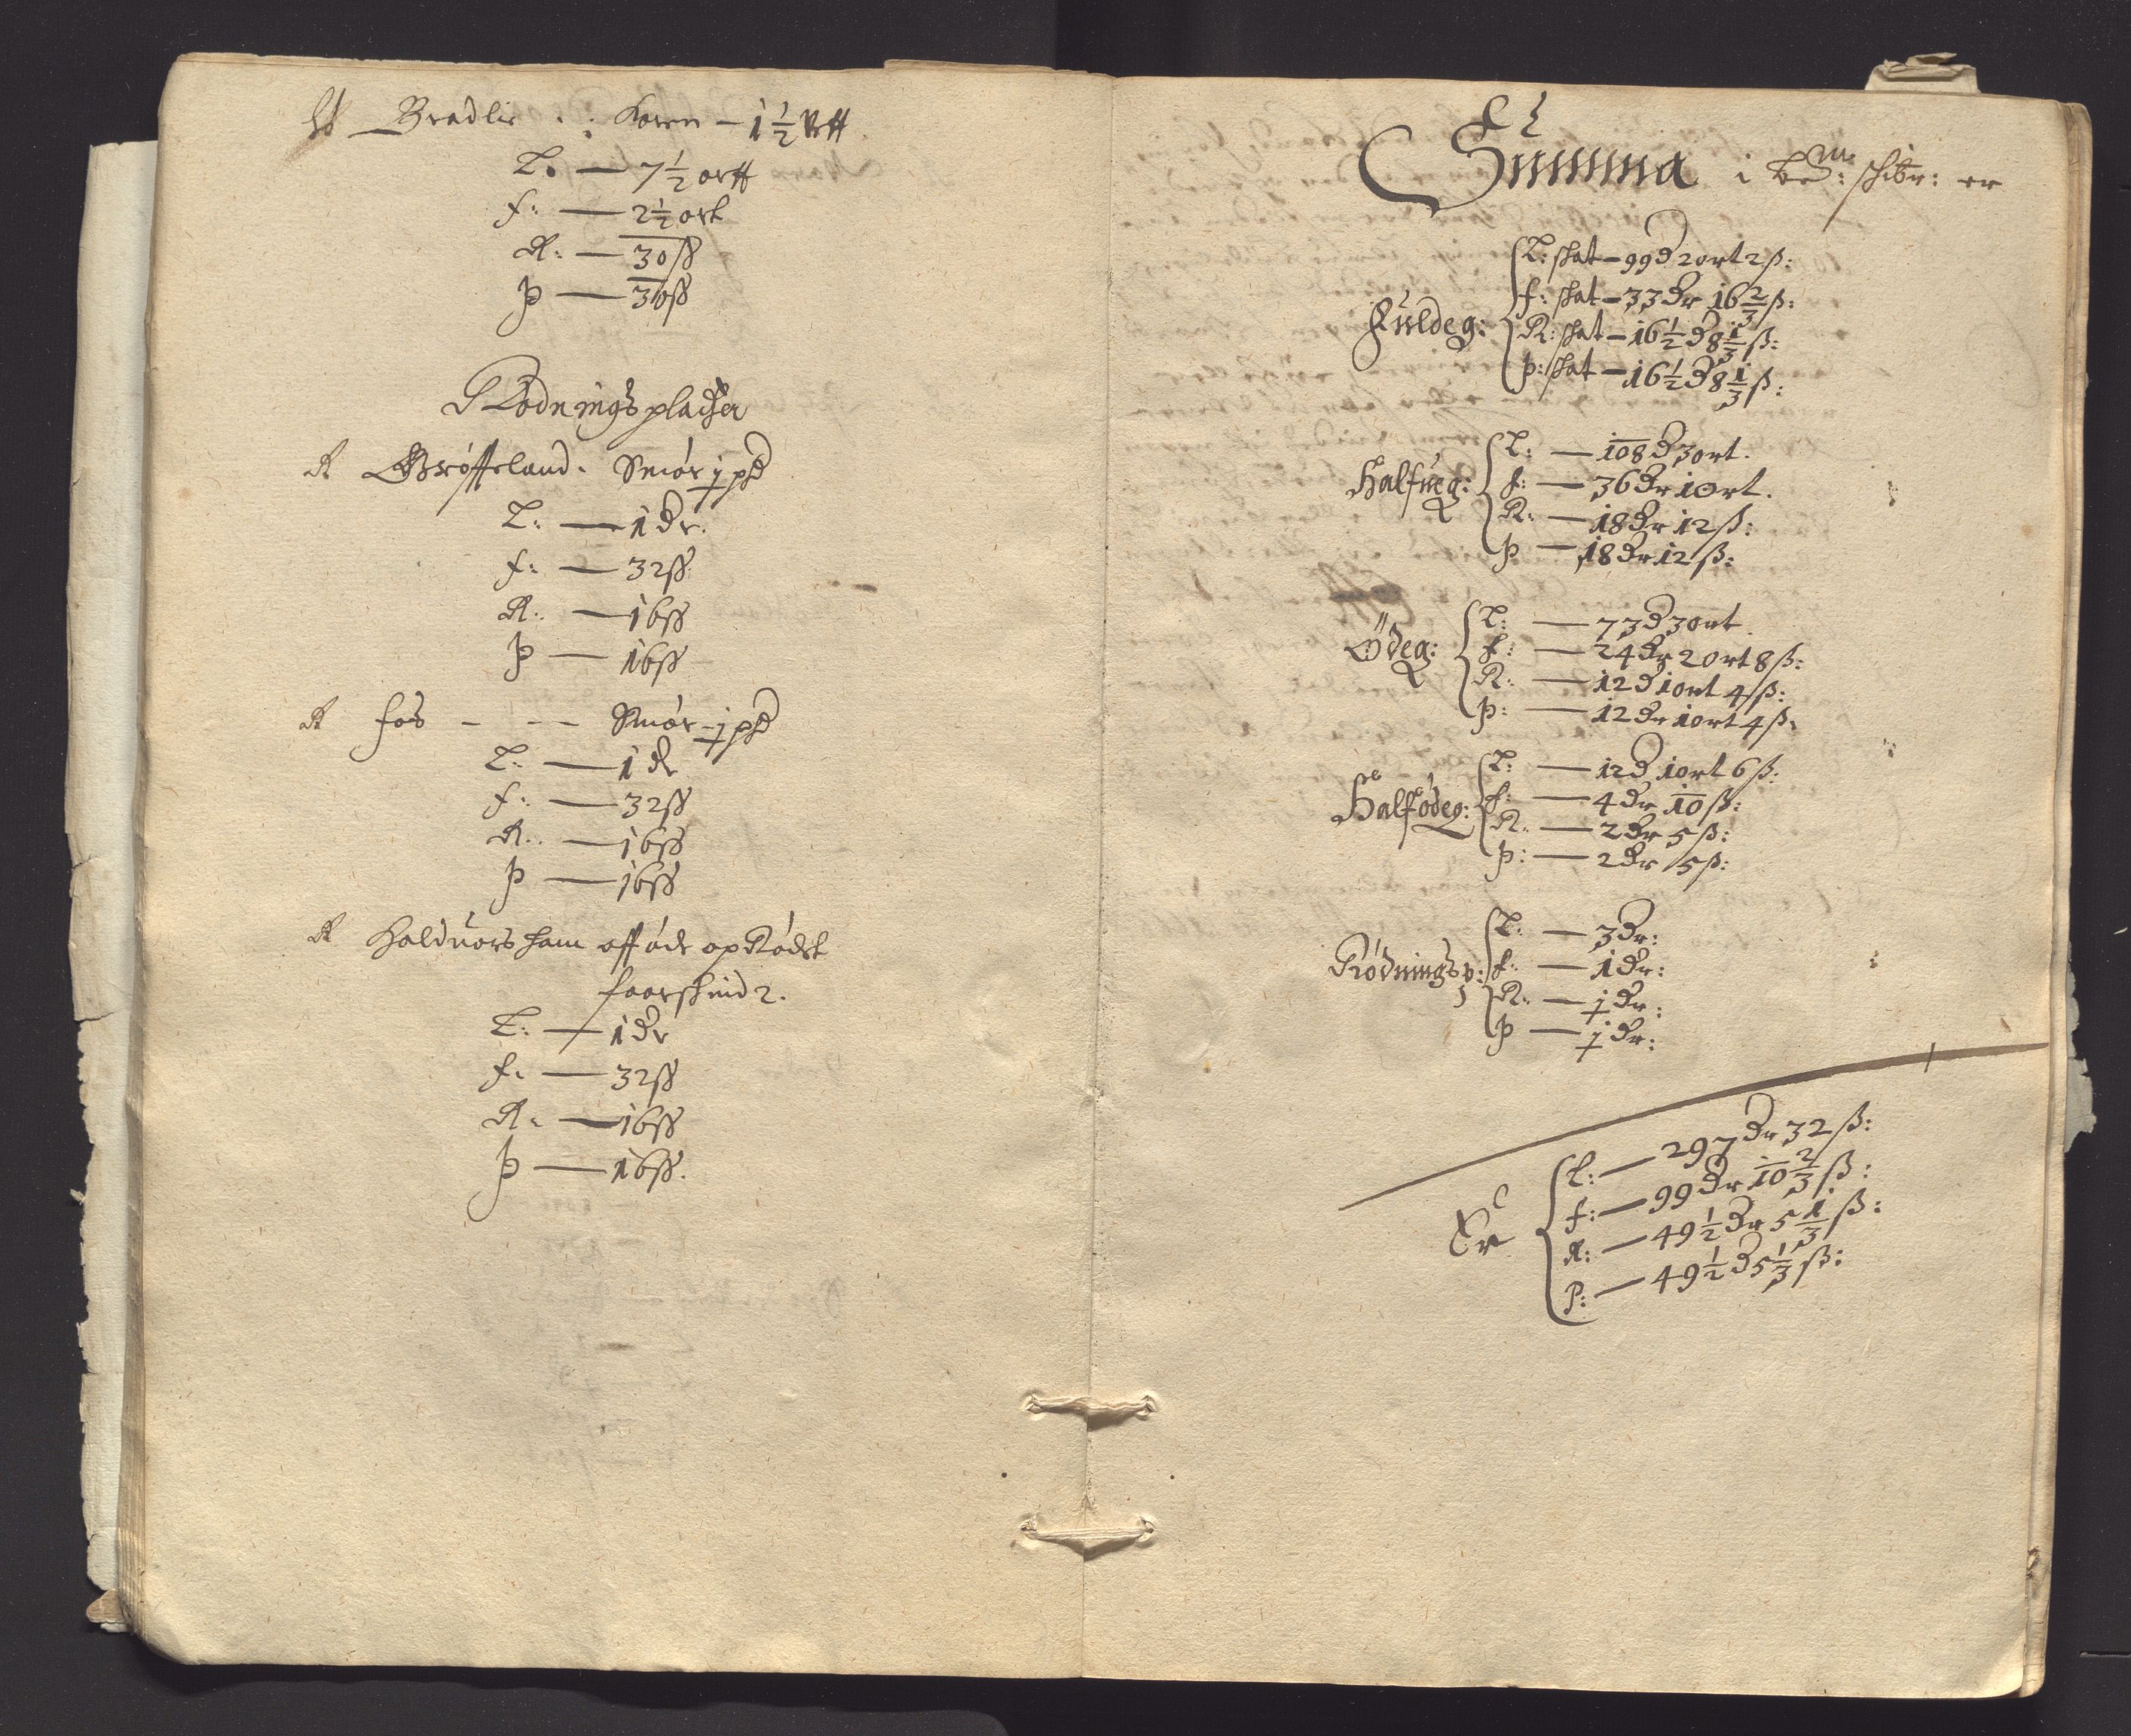 Bradlie . : Korn — 1½ [?]
L: — 7½ ortt
f: — 2½ ort
R: — 30 ß
Þ — 30 ß
Rødnings pladtzer
R Grøffueland . Smør j pd
L: — 1 dr.
f: — 32 ß
R: — 16 ß
Þ — 16 ß
R fos - - - Smør - j pd
L: — 1 dr
f: — 32 ß
R: — 16 ß
Þ — 16 ß
R Halduorsham aff øde op Rødet
faarskind 2.
L: — 1 dr
f: — 32 ß
R: — 16 ß
Þ — 16 ß.
Summa i bem: schibr: er
Fuldeg: L: skat — 99 d 2 ort 2 ß:
f: skat — 33 dr 16⅔ ß:
R: skat — 16½ d 8⅓ ß:
Þ: skat — 16½ d 8⅓ ß:
Halfueg: L: — 108 d 3 ort.
f: — 36 dr 1 ort.
R: — 18 dr 12 ß:
Þ — 18 dr 12 ß:
Ödeg: L: — 73 d 3 ort
f: — 24 dr 2 ort 8 ß:
R: — 12 d 1 ort 4 ß:
Þ: — 12 dr 1 ort 4 ß:
Halfödeg: L: — 12 d 1 ort 6 ß:
f: — 4 dr 10 ß:
R: — 2 dr 5 ß:
Þ: — 2 dr 5 ß:
Rødningsp: L: — 3 dr:
f: — 1 dr:
R: — j dr:
Þ — j dr:
Er L: — 297 dr 32 ß:
f: — 99 dr 10⅔ ß:
R: — 49½ dr 5⅓ ß:
P: — 49½ d 5⅓ ß: